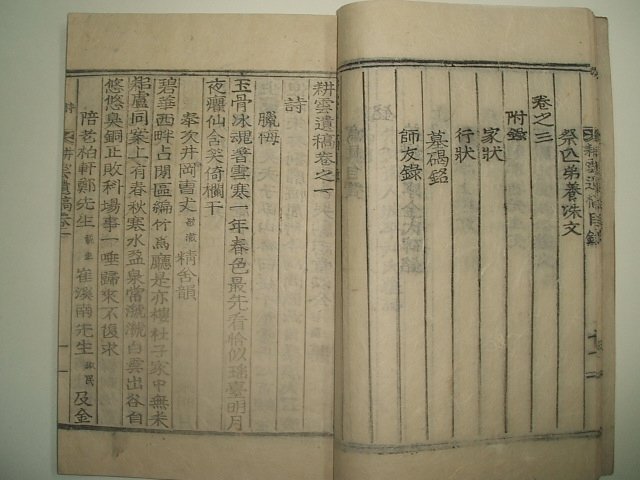 祭仲弟養洙文
卷之三
附錄
家狀
行狀
墓碣銘
師友錄
耕雲遺稿卷之一
詩
臘梅
玉骨氷魂耆雪寒一年春色最先看恰似瑤臺明月
夜癯仙含笑倚欄干
奉次井岡曺丈 精舍韻
碧華西畔占閒區編竹爲廳是亦樓杜子家中無未
盧同案上有春秋寒水盈泉當虢虢白雲出谷自
悠悠臭銅正敗科場事一唾歸來不復求
陪老栢軒鄭先生 崔溪南先生 及金